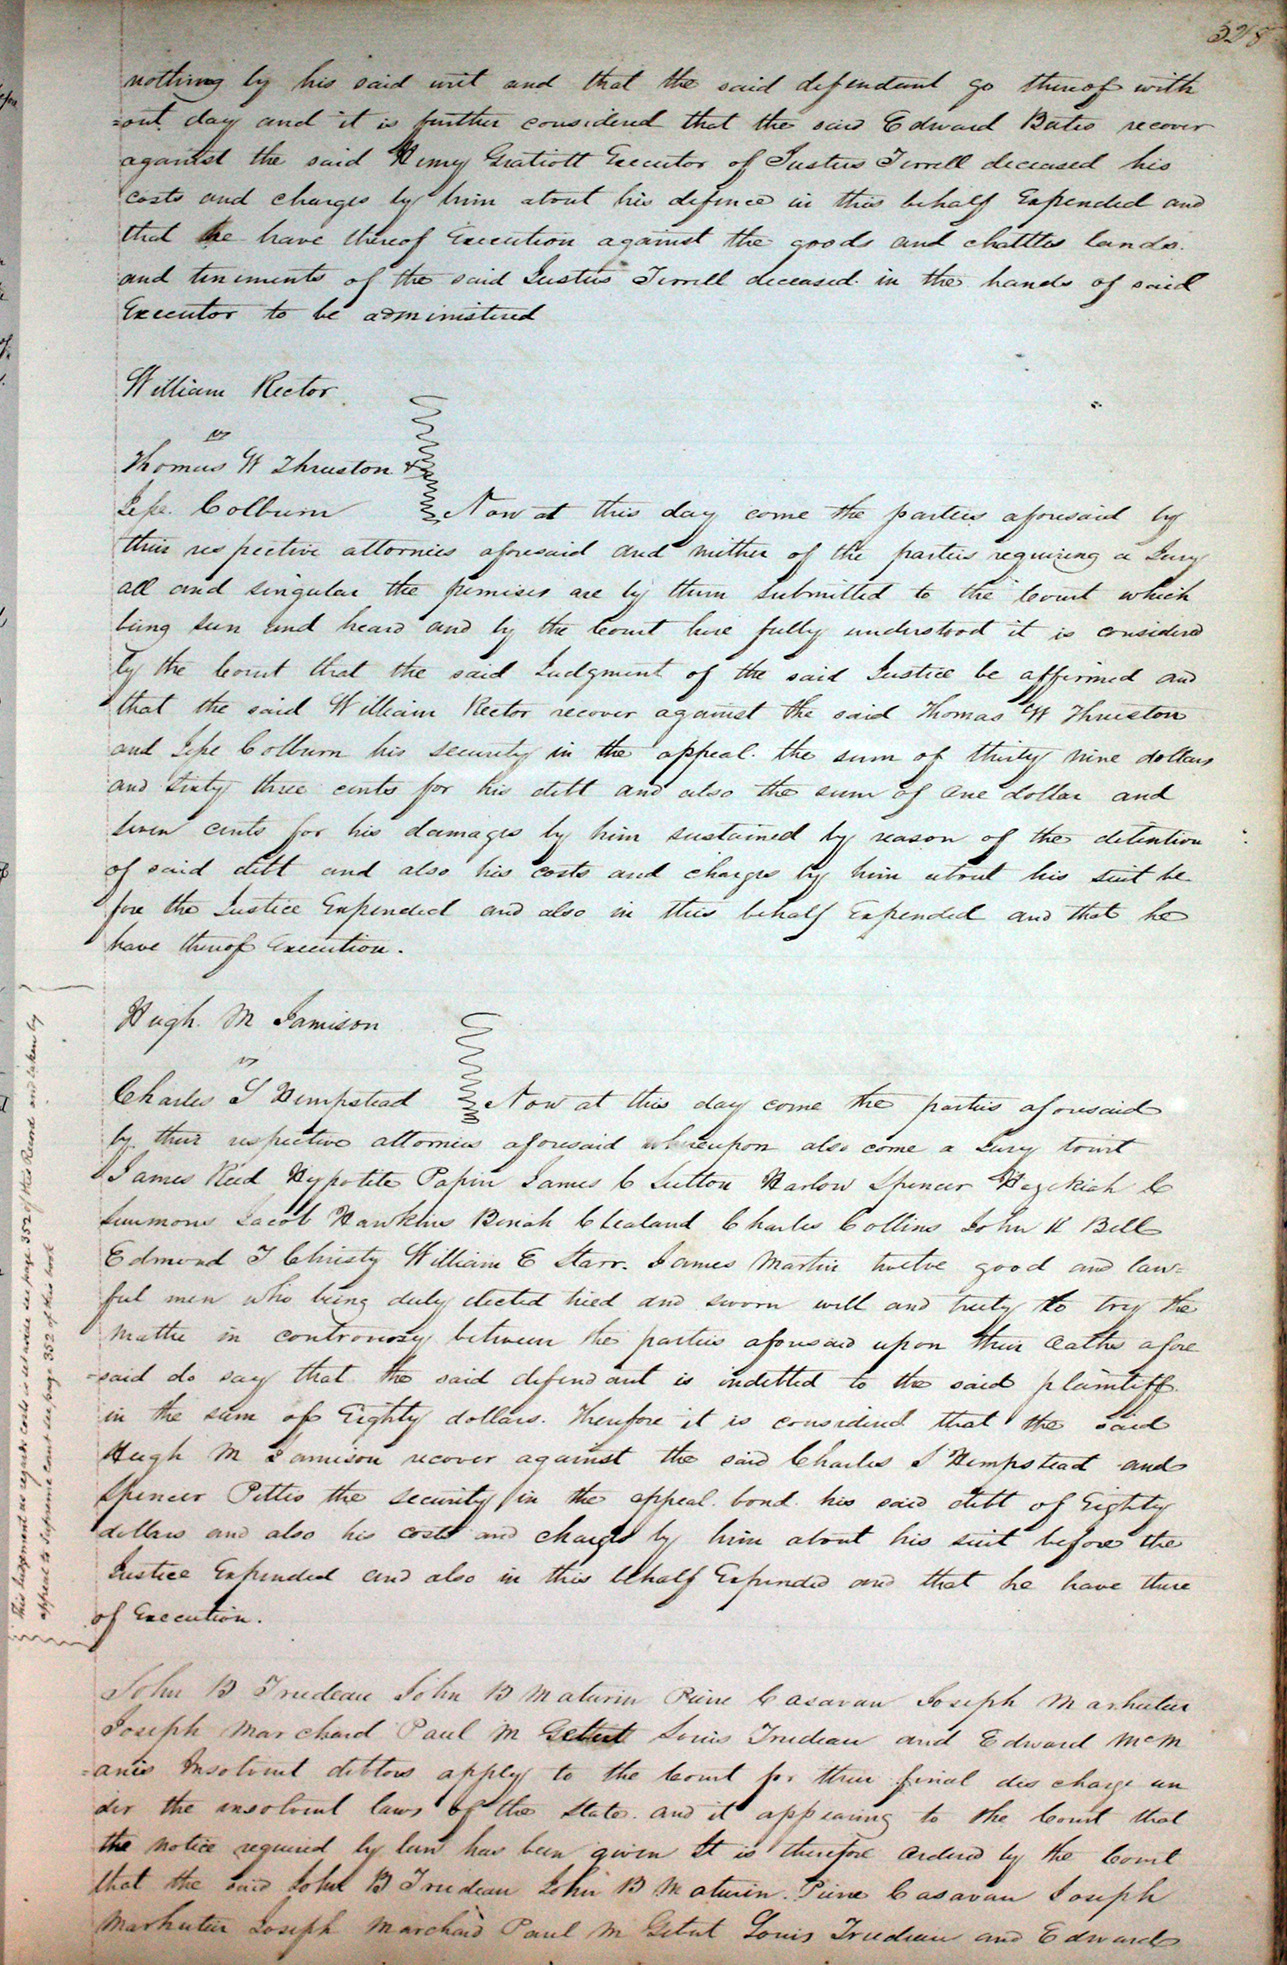 328
nothing by his said writ and that the said defendant go thereof with
=out day and it is further considered that the said Edward Bates recover
against the said Henry Gratiott Executor of Justus Terrell deceased his
costs and charges by him about his defence in this behalf Expended and
that he have thereof Execution against the goods and chattles lands.
and tenements of the said Justus Terrell deceased in the hands of said
Executor to be administered
William Rector
vs
Thomas W Thruston &
Jesse Colburn Now at this day come the parties aforesaid by
their respective attornies aforesaid and neither of the parties requiring a Jury
all and singular the premises are by them submitted to the Court which
being seen and heard and by the Court here fully understood it is considered
by the Court that the said Judgment of the said Justice be affirmed and
that the said William Rector recover against the said Thomas W Thruston
and Jesse Colburn his security in the appeal. the sum of thirty nine dollars
and sixty three cents for his debt and also the sum of one dollar and
seven cents for his damages by him sustained by reason of the detention
of said debt and also his costs and charges by him about his suit be
fore the Justice Expended and also in this behalf Expended and that he
have thereof Execution.
Hugh M Jamison
vs
Charles S Hempstead Now at this day come the parties aforesaid
by their respective attornies aforesaid whereupon also come a Jury towit
James Reed Hypolite Papin James C Sutton Harlow Spencer Hezekiah C
Simmons Jacob Hawkins Beriah Clealand Charles Collins John K Bell
Edmond T Christy William E Starr. James Martin twelve good and law=
ful men who being duly elected tried and sworn well and truly to try the
matter in controversy between the parties aforesaid upon their Oaths afore
=said do say that the said defendant is indebted to the said plaintiff.
in the sum of Eighty dollars. Therefore it is considered that the said
Hugh M Jamison recover against the said Charles S Hempstead and
Spencer Pettis the security in the appeal bond his said debt of Eighty
dollars and also his costs and charges by him about his suit before the
Justice Expended and also in this behalf Expended and that he have there
of Execution.
This Judgment as regards costs is set aside see page 352 of this Record and taken by
appeal to Supreme Court see page 352 of this book
John B Trudeau John B Maturin Piere Casavau Joseph Marheteu
Joseph Marchard Paul M Gebert Louis Trudeau and Edward McM
=anis Insolvent debtors apply to the Court for their final discharge un
der the insolvent laws of the State. and it appearing to the Court that
the notice required by law has been given It is therefore ordered by the Court
that the said John B Trudeau John B Maturin. Piere Casavau Joseph
Marheteu Joseph Marchard Paul M Gebert Louis Trudeau and Edward